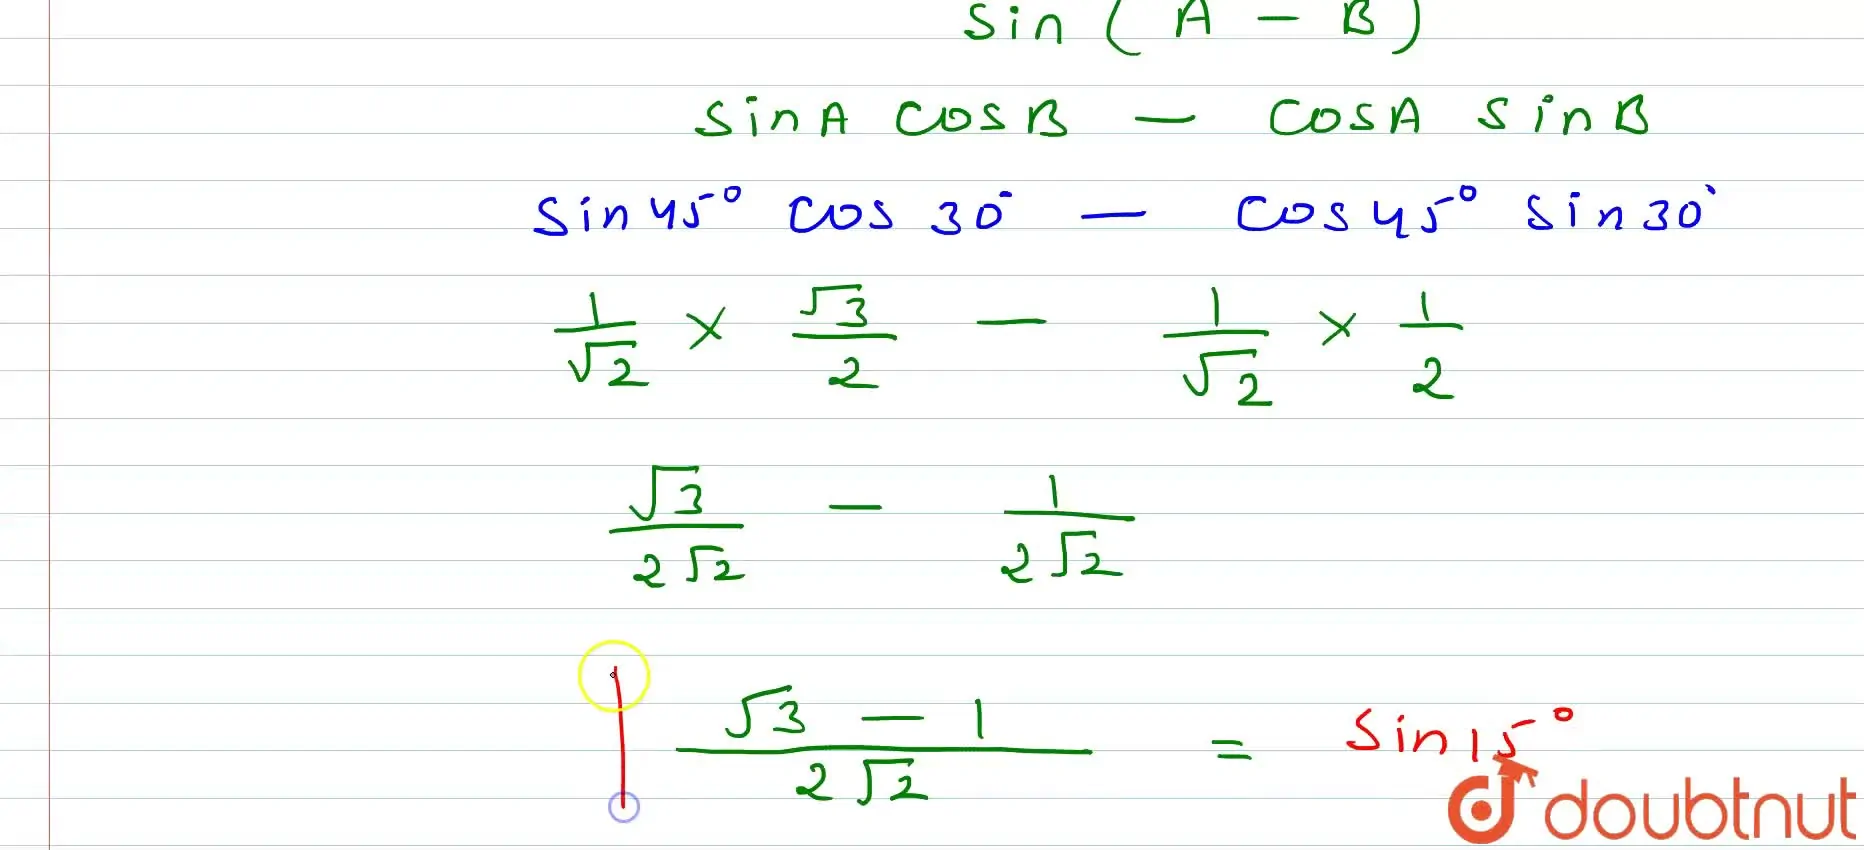 sin (A - B)
sinA cosB - cosA sinB
sin45° cos30° - cos45° sin30°
1/√2 × √3/2 - 1/√2 × 1/2
√3/2√2 - 1/2√2
√3 - 1/2√2 = sin15°
doubtnut